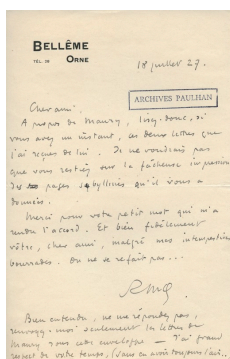 BELLÊME
TÉL. 26 ORNE
18 juillet 27.
ARCHIVES PAULHAN
Cher ami.
A propos de Maury, lisez donc, si
vous avez un instant, ces deux lettres que
j'ai reçues de lui. Je ne voudrais pas
que vous restiez sur la fâcheuse impression
des pages sybillines qu'il vous a
données.
Merci pour votre petit mot qui m'a
rendu l'accord. Et bien fidèlement
vôtre, cher ami, malgré mes intempestives
bourrades. On ne se refait pas...
RMG
Bien entendu, ne me répondez pas,
renvoyez-moi seulement les lettres de
Maury sous cette enveloppe — J'ai grand
respect de votre temps, (sans en avoir toujours l'air..